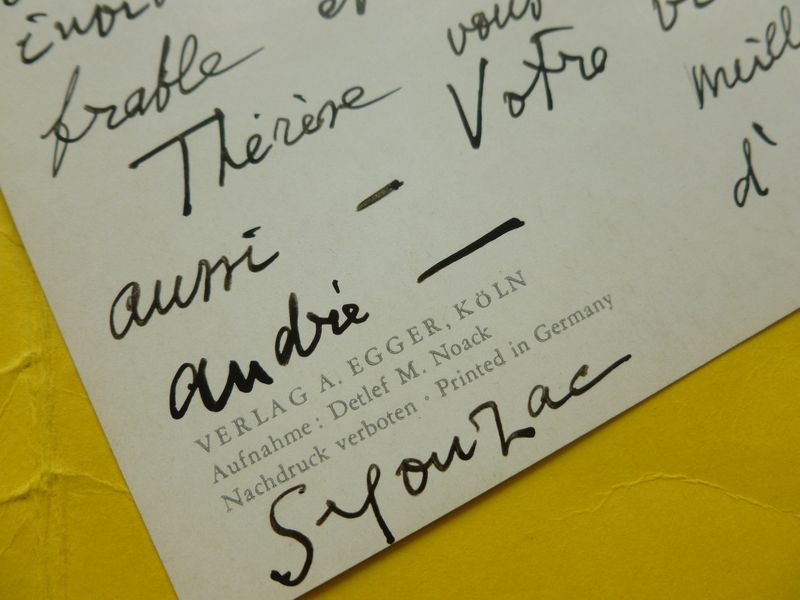 vous
frable
Thérèse Votre
aussi - d'
andré —
VERLAG A. EGGER, KÖLN
Aufnahme: Detlef M. Noack
Nachdruck verboten · Printed in Germany